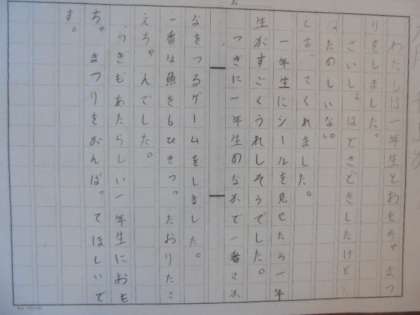 わたしは一年生とおもちゃまつ
りをしました。
さいしょはどきどきしたけど
たのしいな。
してくれました。
一年生にシールを見せたら一年
生がすごくうれしそうでした。
つぎに一年生のなかで一番さか
なをつるゲームをしました。
一番は魚を6ひきつっ
えちゃんでした。
きもあたらしい一年生におも
ちゃまつりをがんばってほしいで
す。